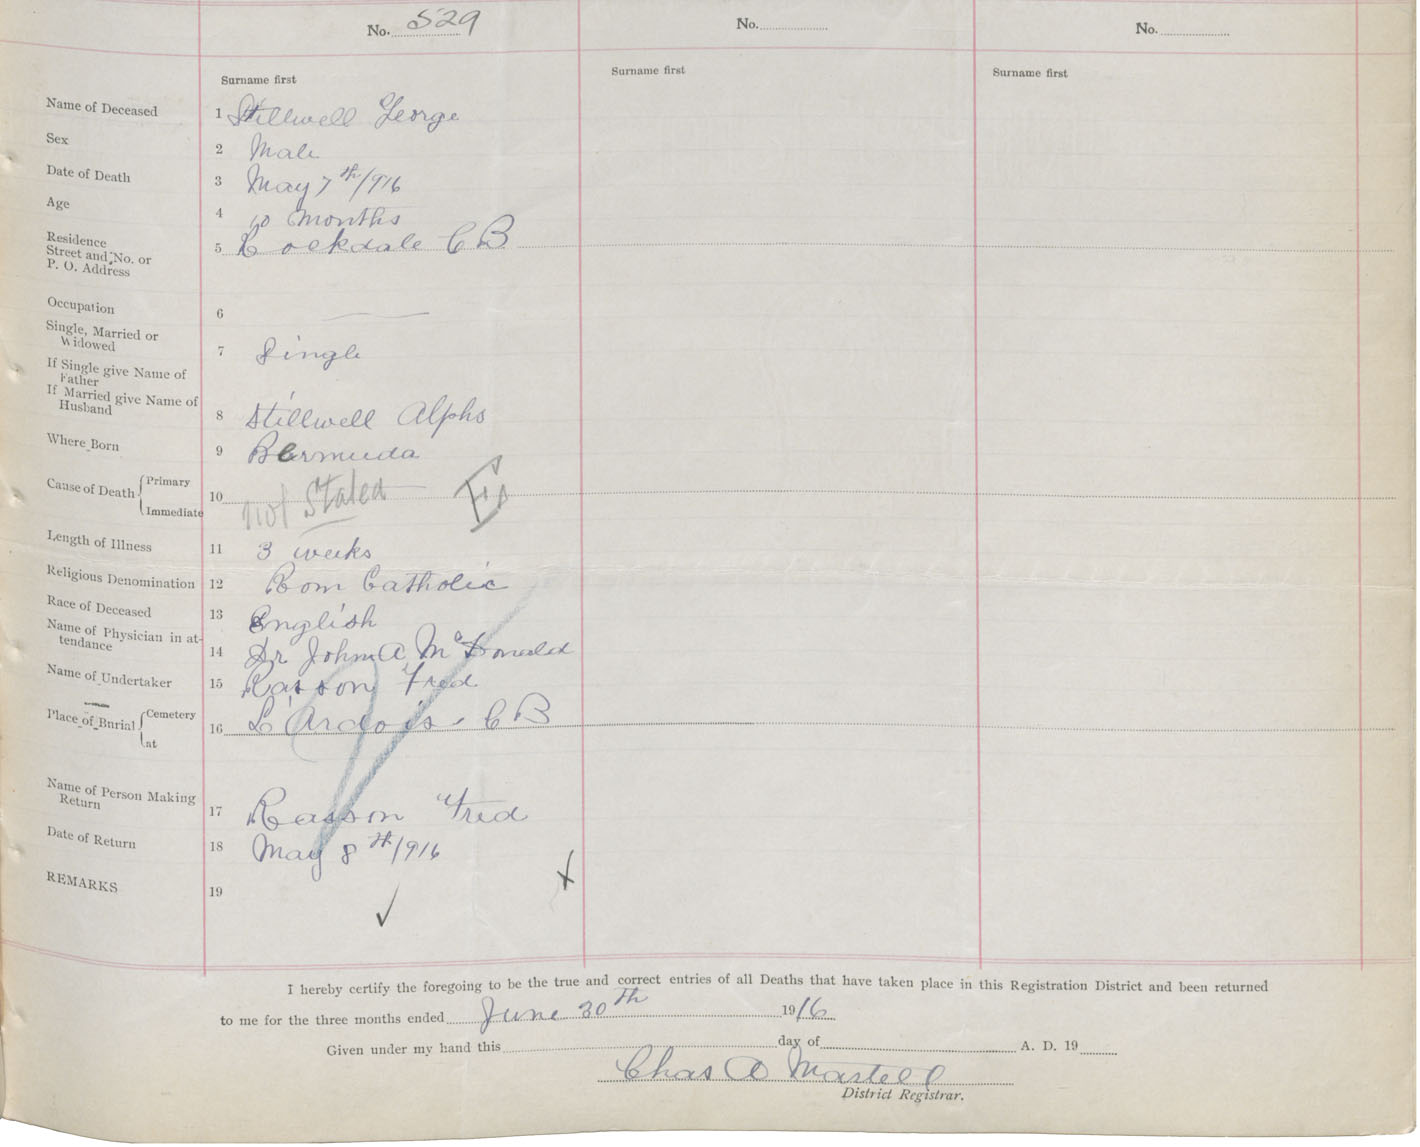 No. 529
No.
No.
Surname first
Surname first
Surname first
Name of Deceased 1 Stillwell George
Sex 2 Male
Date of Death 3 May 7th/916
Age 4 10 months
Residence
Street and No. or
P. O. Address 5 Rockdale C B
Occupation 6
Single, Married or
Widowed 7 Single
If Single give Name of
Father
If Married give Name of
Husband 8 Stillwell Alphs
Where Born 9 Bermuda
Cause of Death Primary
Immediate 10 not Stated
Length of Illness 11 3 weeks
Religious Denomination 12 Rom Catholic
Race of Deceased 13 English
Name of Physician in at-
tendance 14 Dr John A McDonald
Name of Undertaker 15 Rasson Fred
Place of Burial Cemetery
at 16 L'Ardois C B
Name of Person Making
Return 17 Rasson Fred
Date of Return 18 May 8th/916
REMARKS 19
I hereby certify the foregoing to be the true and correct entries of all Deaths that have taken place in this Registration District and been returned
to me for the three months ended June 30th 1916
Given under my hand this day of A. D. 19
Chas A Martell
District Registrar.